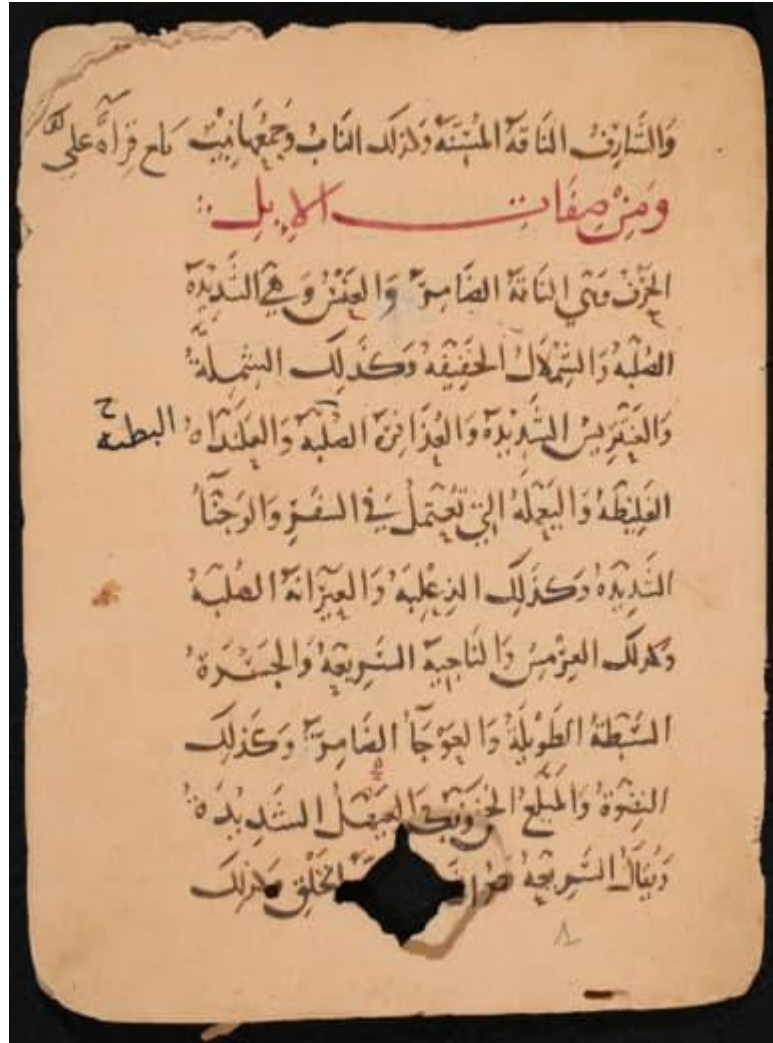 وَالشَّارِفُ النَّاقَةُ المُسِنَّةُ وَكذلك النَّابُ وَجَمْعُهَا نِيْبٌ بلغ قراءةً عليَّ
وَمِنْ صِفَاتِ الإِبِلِ
الحَرْفُ وَهِيَ النَّاقَةُ الضَّامِرَةُ وَالعَنْسُ وَهِيَ الشَّدِيْدَةُ
الصُّلْبَةُ وَالشِّمْلَالُ الخَفِيْفَةُ وَكَذَلِكَ الشِّمِلَّةُ
وَالعَنْتَرِيسُ الشَّدِيْدَةُ وَالعُذَافِرَةُ الصُّلْبَةُ وَالعَلَنْدَاةُ
الغَلِيْظَةُ وَاليَعْمَلَةُ الَّتِي تُعْتَمَلُ فِي السَّفَرِ وَالوَجْنَآءُ
الشَّدِيْدَةُ وَكَذَلِكَ الذِّعْلِبَةُ وَالعَيْرَانَةُ الصُّلْبَةُ
وكذلك العِرْمِسُ وَالنَّاجِيَةُ السَّرِيْعَةُ وَالجَسْرَةُ
السَّبْطَةُ الطَّوِيْلَةُ وَالعَوْجَآءُ الضَّامِرَةُ وَكَذَلِكَ
النِّضْوَةُ وَالعَيْهَلُ الشَّدِيْدَةُ
وَيُقَالُ السَّرِيْعَةُ الخَلْقِ وَكذلك
٨